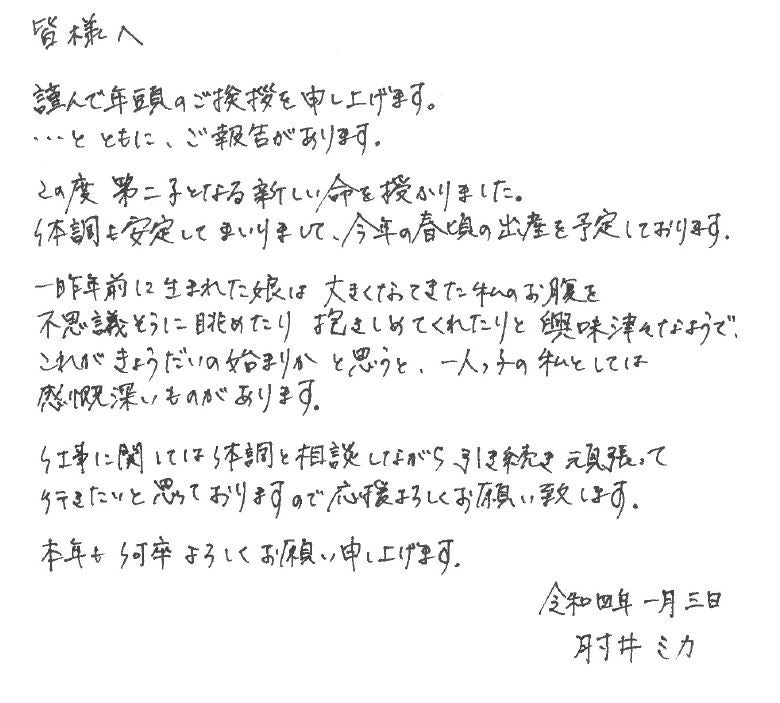 皆様へ
謹んで年頭のご挨拶を申し上げます。
…と ともに、ご報告があります。
この度 第二子となる新しい命を授かりました。
体調も安定してまいりまして、今年の春頃の出産を予定しております。
一昨年前に生まれた娘は 大きくなってきた私のお腹を
不思議そうに眺めたり 抱きしめてくれたりと 興味津々なようで、
これがきょうだいの始まりか と思うと、一人っ子の私としては
感慨深いものがあります。
仕事に関しては体調と相談しながら 引き続き 頑張って
行きたいと思っておりますので応援よろしくお願い致します。
本年も何卒よろしくお願い申し上げます。
令和四年 一月 三日
肘井 ミカ